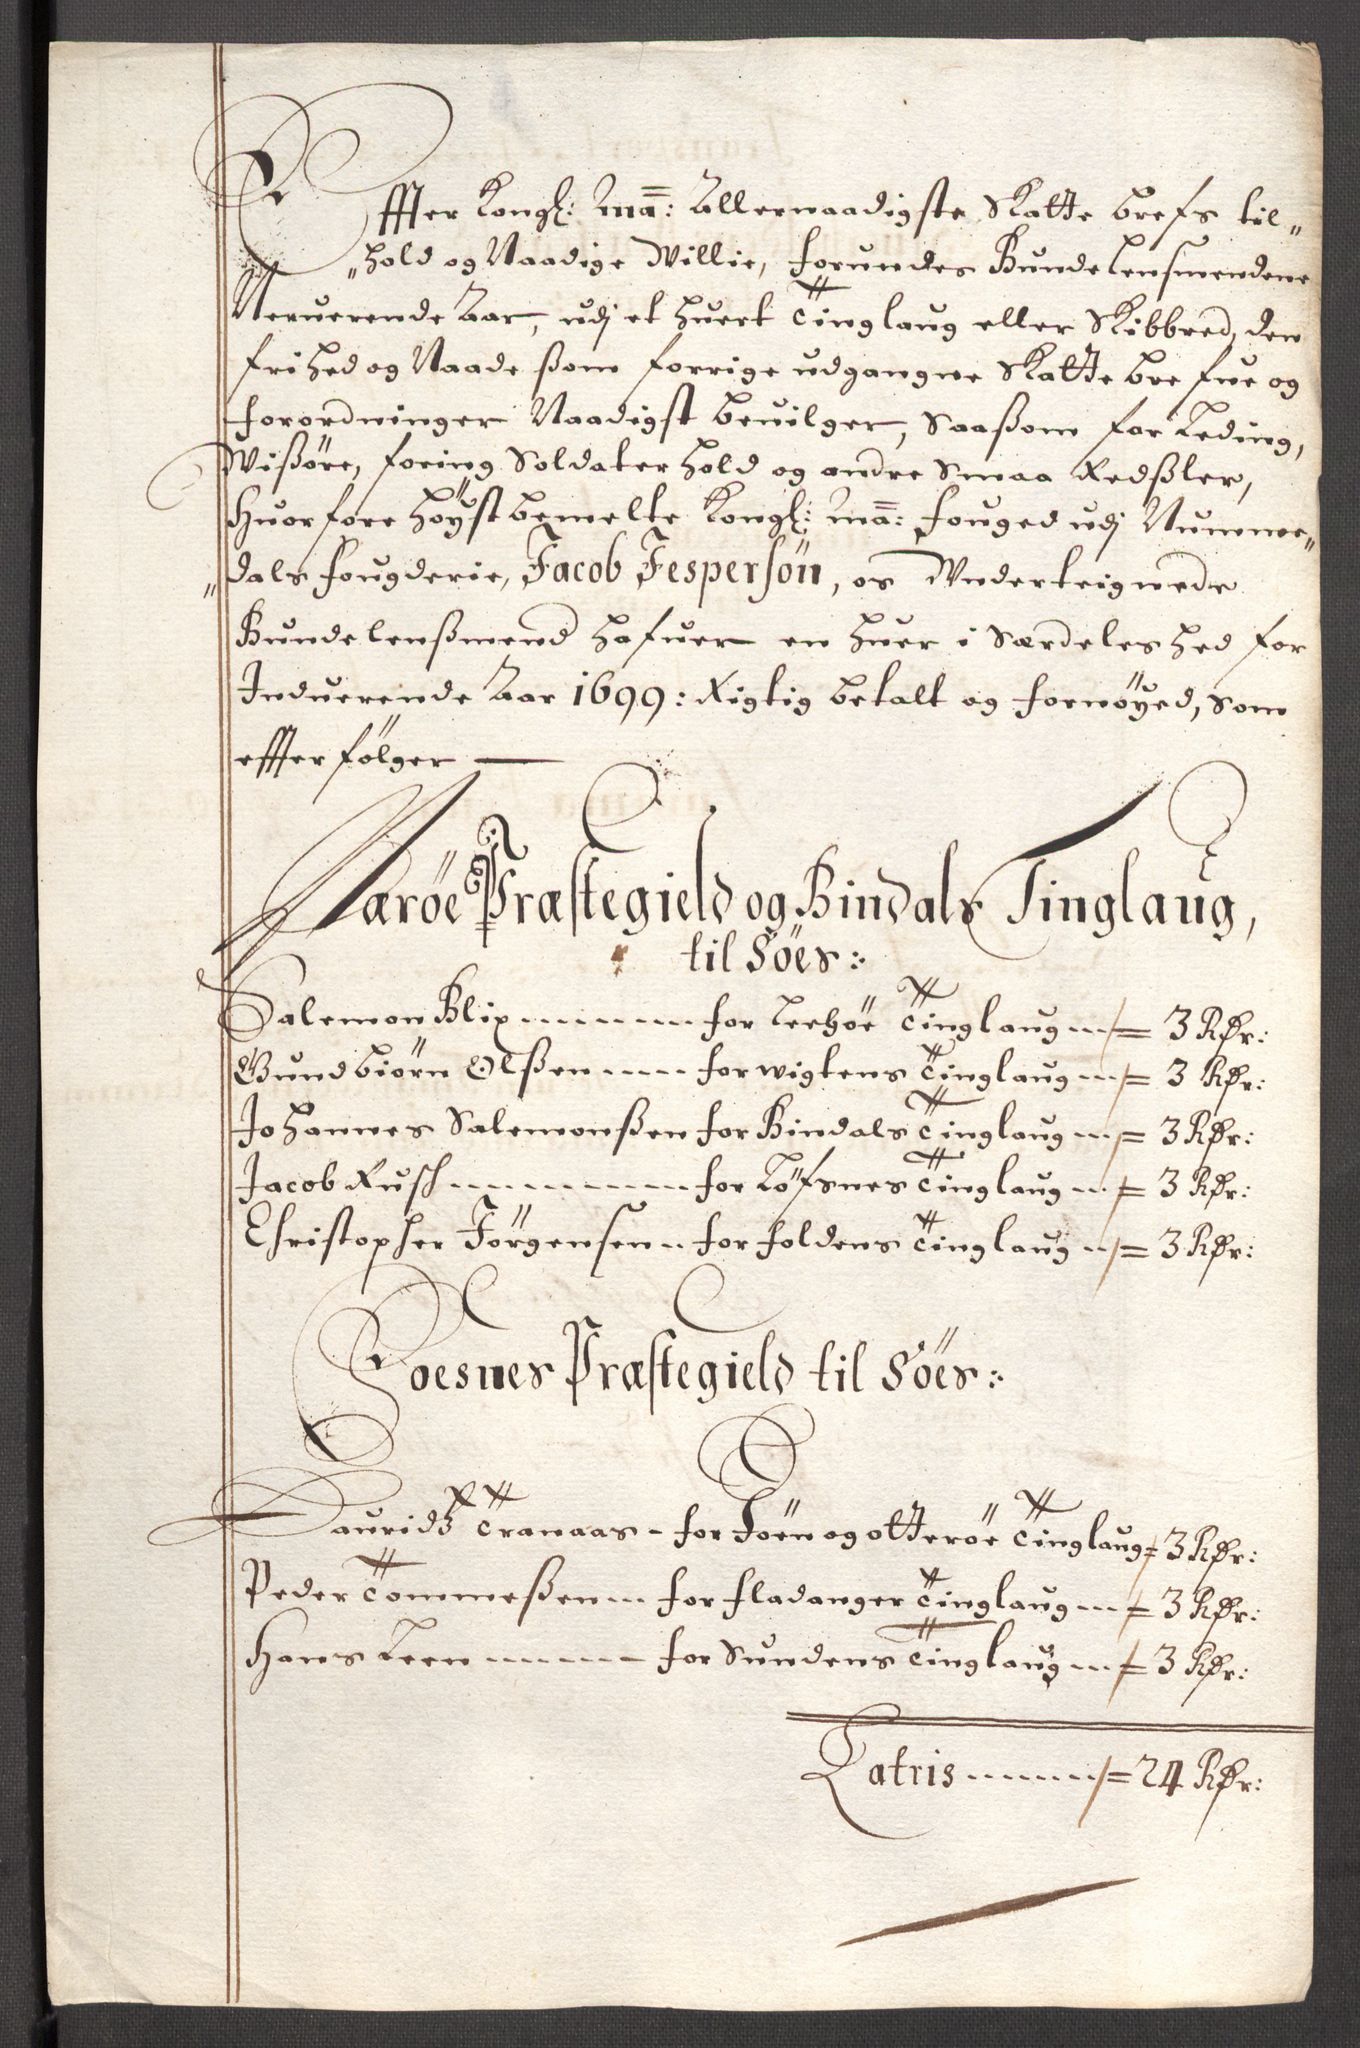 Effter Kongl: Ma: Allernaadigste Skatte brefs til„
„hold og Naadige Willie, forundes Bunde lensmendene
Neruerende Aar, udj et huert Tinglaug eller Skibbred, den
frihed og Naade ßom forrige udgangne Skatte brefue og
forordninger Naadigst beuilger, Saaßom for Leding,
Wißøre, foring Soldaterhold og andre Smaa Redßler,
Huorfore höystbemelte Kongl: Ma: fouged udj Numme„
„dals fougderie, Jacob Jespersön, os Underteignede
Bundelenßmend hafuer en huer i Særdeleshed for
Induerende Aar 1699: Rigtig betalt og fornöyed, Som
effterfölger
Næröe Præstegield og Bindals Tinglaug,
til Söes:
Salemon Blix for Leehöe Tinglaug = 3 Rdr:
Gundbiörn Olßen for Wigtens Tinglaug = 3 Rdr:
Johannes Salemonßen for Bindals Tinglaug = 3 Rdr:
Jacob Rusch for Löfsnes Tinglaug = 3 Rdr:
Christopher Jörgensen for foldens Tinglaug = 3 Rdr:
Foesnes Præstegield til Söes:
Lauridtz Tranaas - for Söen og Otteröe Tinglaug = 3 Rdr:
Peder Tommeßen for fladanger Tinglaug = 3 Rdr:
Hans Leen for Sundens Tinglaug = 3 Rdr:
Latris = 24 Rdr: